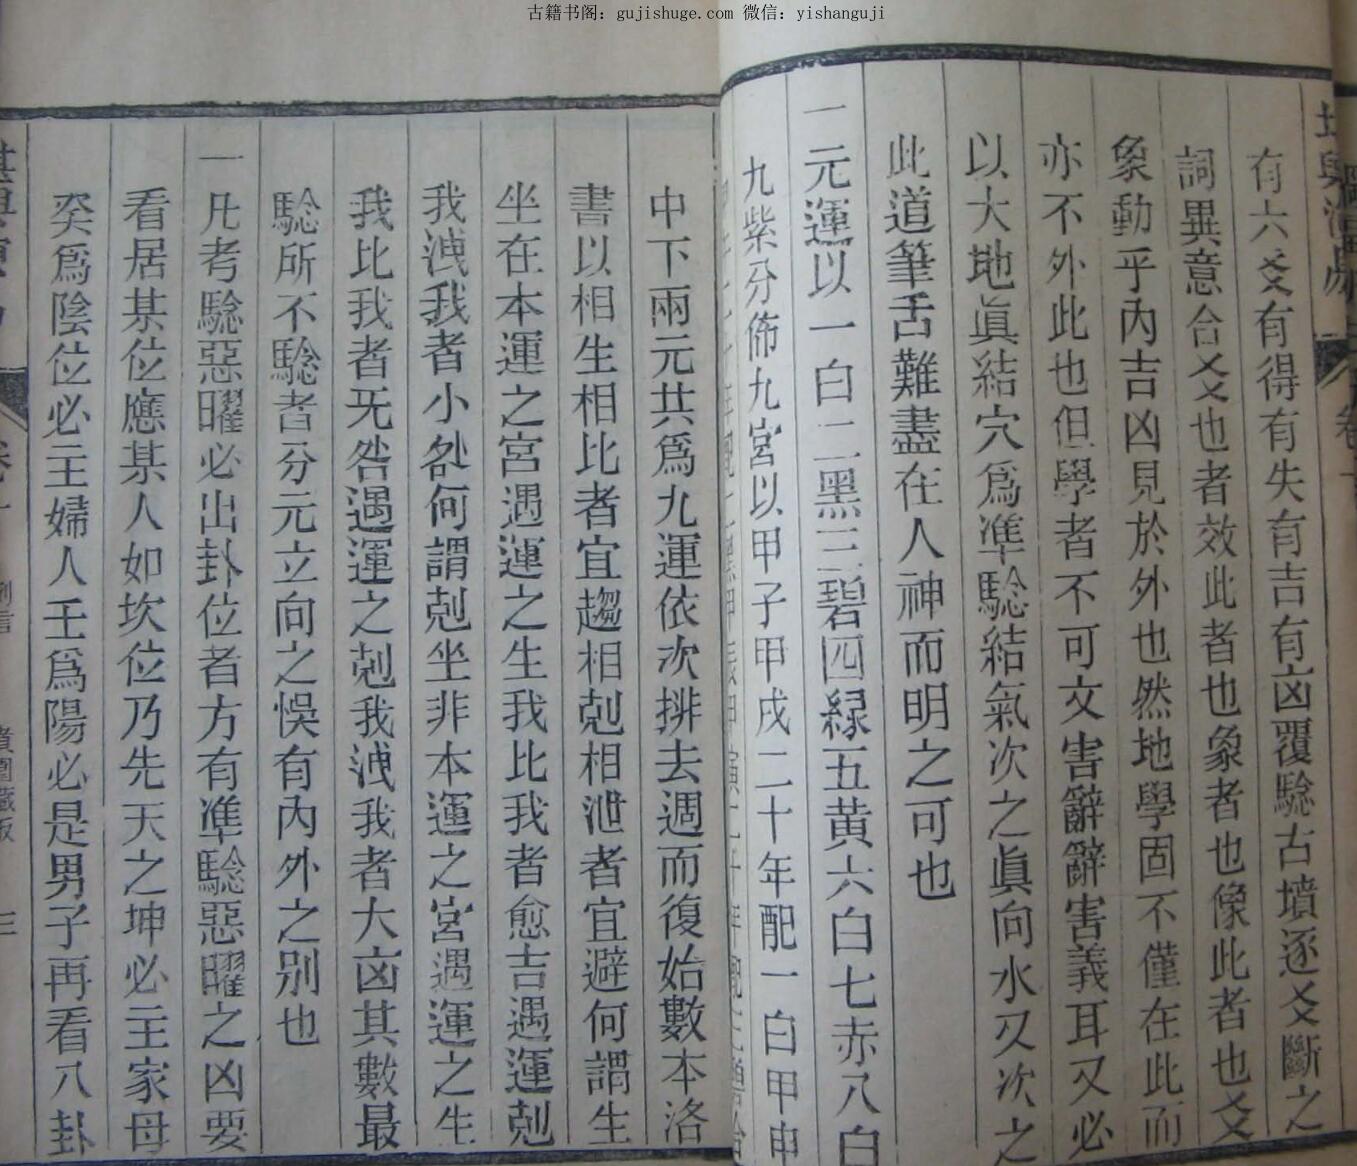 古籍书阁：gujishuge.com 微信：yishanguji
有六爻有得有失有吉有凶覆騐古墳逐爻斷之
詞異意合爻也者效此者也象者也像此者也爻
象動乎內吉凶見於外也然地學固不僅在此而
亦不外此也但學者不可文害辭辭害義耳又必
以大地眞結穴爲準騐結氣次之眞向水又次之
此道筆舌難盡在人神而明之可也
一元運以一白二黑三碧四綠五黃六白七赤八白
九紫分佈九宮以甲子甲戌二十年配一白甲申
中下兩元共爲九運依次排去週而復始數本洛
書以相生相比者宜趨相剋相泄者宜避何謂生
坐在本運之宮遇運之生我比我者愈吉遇運剋
我洩我者小咎何謂剋坐非本運之宮遇運之生
我比我者旡咎遇運之剋我洩我者大凶其數最
騐所不騐者分元立向之悞有內外之別也
一凡考騐惡曜必出卦位者方有準騐惡曜之凶要
看居某位應某人如坎位乃先天之坤必主家母
癸爲陰位必主婦人壬爲陽必是男子再看八卦